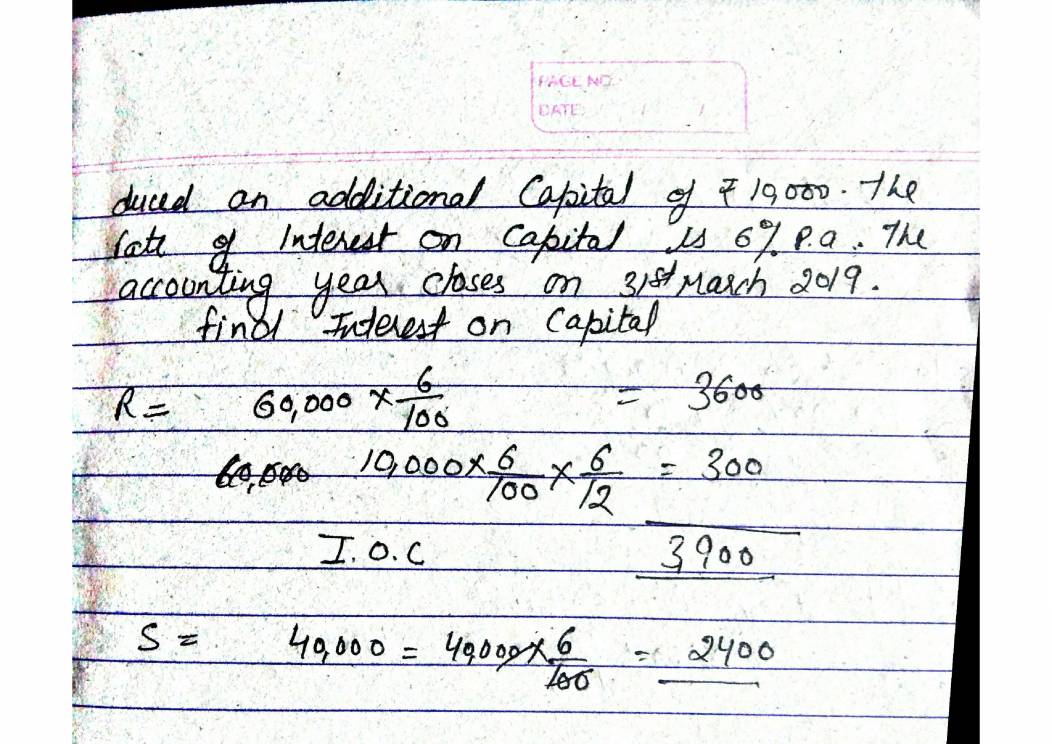 PAGE NO.
DATE / /
duced an additional Capital of ₹ 10,000. The
rate of Interest on Capital is 6% P.a. The
accounting year closes on 31st March 2019.
find Interest on Capital
R = 60,000 × 6/100 = 3600
10,000 × 6/100 × 6/12 = 300
I.O.C 3900
S = 40,000 = 40,000 × 6/100 = 2400